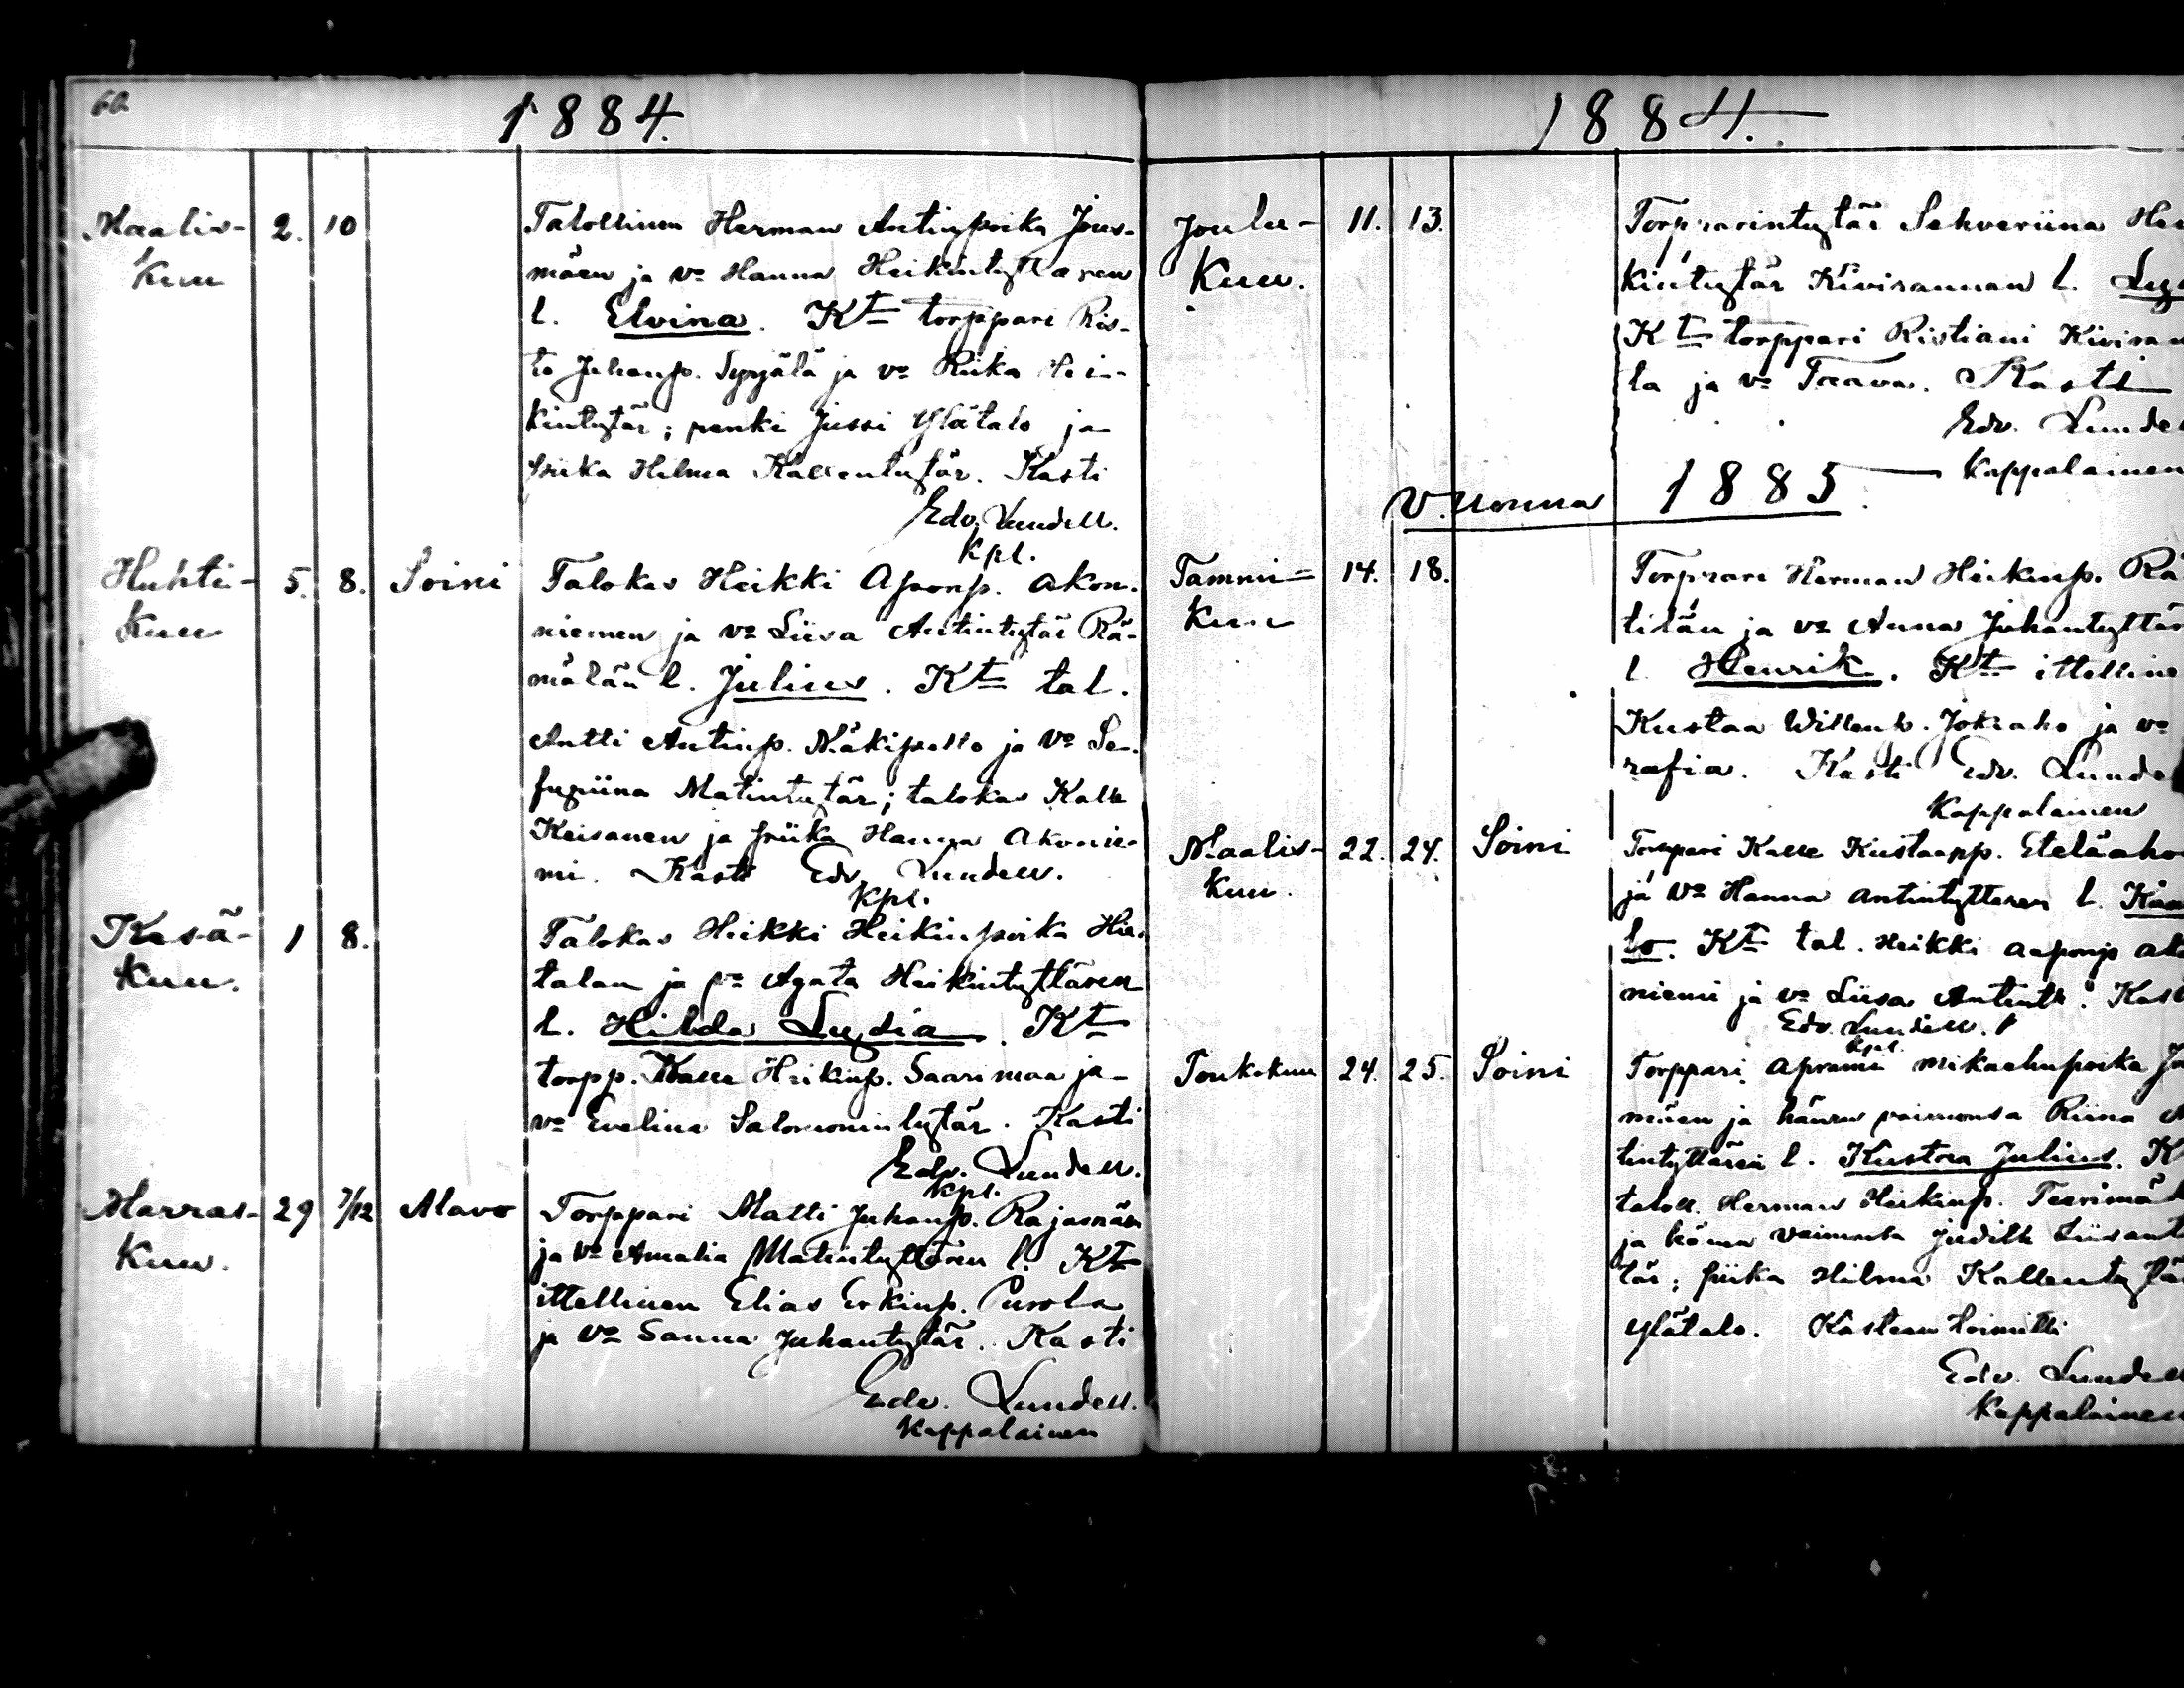 60
1884.
Maalis-
kuu
2. 10
Talollinen Herman Antinpoika Jous-
mäen ja vo Hanna Heikintyttären
l. Elvina. Kt torppari Ris-
to Juhanp. Syrjälä ja vo Riika Hei-
kintytär; renki Jussi Ylätalo ja
piika Hilma Kallentytär. Kasti
Edv. Lundell.
Kpl.
Huhti-
kuu
5. 8. Soini
Talokas Heikki Aponp. Akon-
niemen ja vo Liisa Antintytär Rä-
mälän l. Julius. Kt tal.
Antti Antinp. Mäkipello ja vo Se-
fupiina Matintytär; talokas Kalle
Keisanen ja piika Hanna Akonie-
mi. Kasti Edv. Lundell.
Kpl.
Kesä-
kuu.
1 8.
Talokas Heikki Heikinpoika Hie-
talan ja vo Agata Heikintyttären
l. Hilda Lydia. Kt
torpp. Kalle Heikinp. Saarimaa ja
vo Evelina Salomonintytär. Kasti
Edv. Lundell.
Kpl.
Marras-
kuu.
29 7/12 Alavo
Torppari Matti Juhanp. Rajasnäs
ja vo Amalia Matintyttären l. Kt
ittellinen Elias Erkinp. Purola
ja vo Sanna Juhantytär. Kasti
Edv. Lundell.
Kappalainen
1884.
Joulu-
kuu.
11. 13.
Torpparintytär Sehveriina Hei
kintytär Kivirannan l. Ly
Kt torppari Ristiani Kiviran
ta ja vo Taava. Kasti
Edv. Lunde
Kappalainen
V. Uonna 1885
Tammi=
kuu
14. 18.
Torppari Herman Heikinp. Rä
tilän ja vo Anna Juhantyttär
l. Henrik. Kt ittelline
Kustaa Willenp. Jokiaho ja vo
rafia. Kasti Edv. Lunde
Kappalainen
Maalis-
kuu.
22. 24. Soini
Torppari Kalle Kustaapp. Eteläaho
ja vo Hanna Antintyttären l. Kaa
lo. Kt tal. Heikki Aaponp Ako
niemi ja vo Liisa Antintr. Kast
Edv. Lundell.
Kpl.
Toukokuu 24. 25. Soini
Torppari Aprami Mikaelinpoika Jä
mäen ja hänen vaimonsa Riina
tintyttären l. Kustaa Julius. K
taloll. Herman Heikinp. Teerimä
ja hänen vaimonsa Judith Liisant
tär; piika Hilma Kallentytä
Ylätalo. Kasteen toimitti
Edv. Lundell
Kappalainen